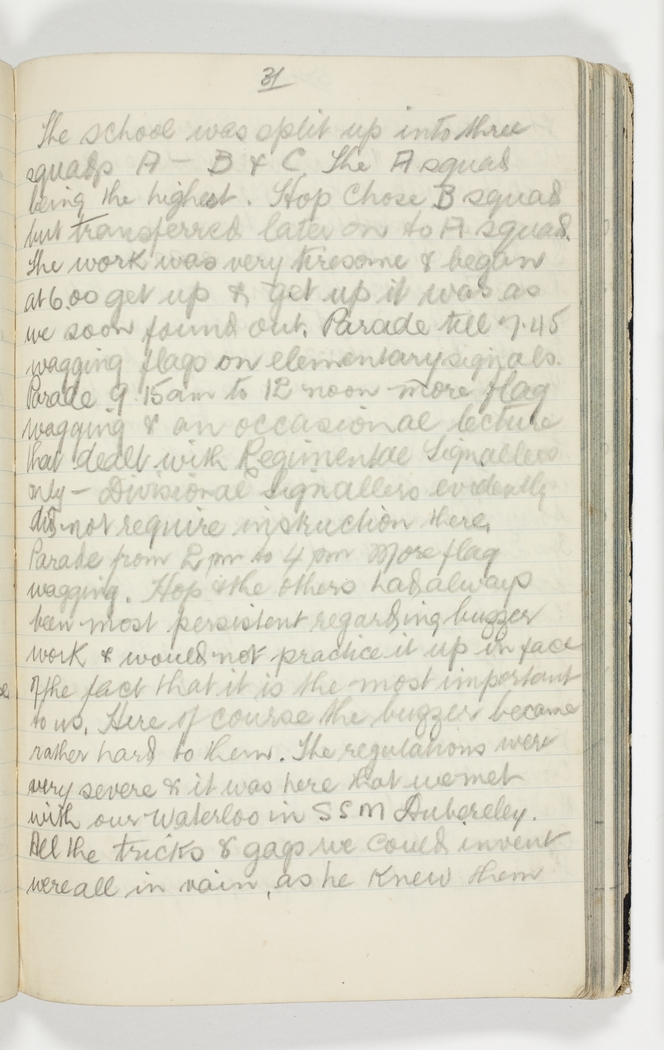 31
The school was split up into three
squads A - B & C. The A squad
being the highest. Hop Chose B squad
but transferred later on to A squad.
The work was very tiresome & began
at 6.00 get up & get up it was as
we soon found out. Parade till 7.45
wagging flags on elementary signals.
Parade 9 15am to 12 noon more flag
wagging & an occasional lecture
that dealt with Regimental Signallers
only - Divisional Signallers evidently
did not require instruction there.
Parade from 2 pm to 4 pm More flag
wagging. Hop & the others had always
been most persistent regarding buzzer
work & would not practice it up in face
of the fact that it is the most important
to us. Here of course the buzzer became
rather hard to them. The regulations were
very severe & it was here that we met
with our Waterloo in SSM
All the tricks & gags we could invent
were all in vain, as he knew them